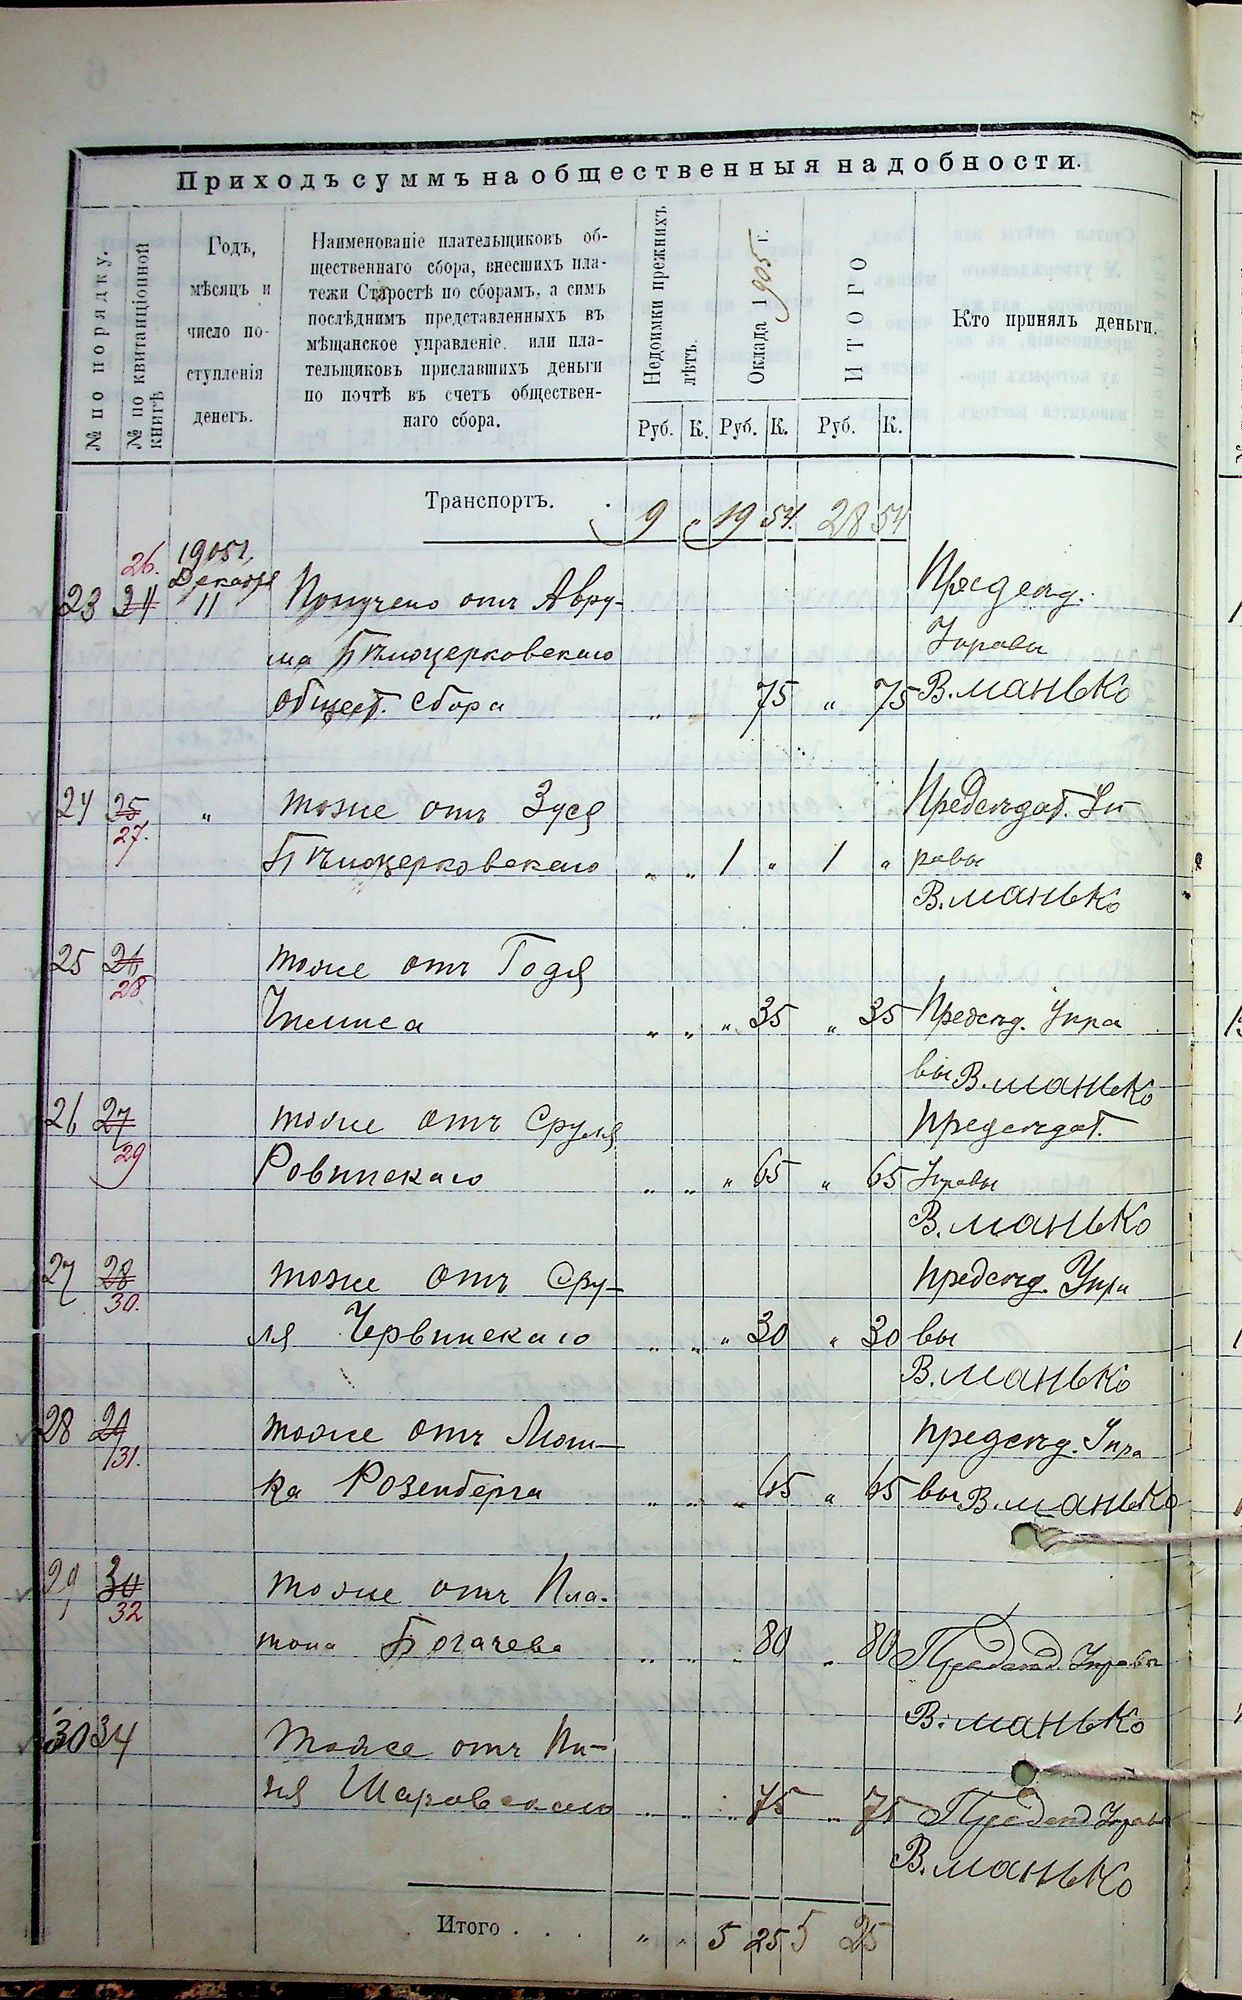 Приходъ суммъ на общественныя надобности.
№ по порядку.
№ по квитанціонной книгѣ
Годъ,
мѣсяцъ и
число по-
ступленія
денегъ.
Наименованіе плательщиковъ об-
щественнаго сбора, внесшихъ пла-
тежи Старостѣ по сборамъ, а симъ
послѣднимъ представленныхъ въ
мѣщанское управленіе, или пла-
тельщиковъ приславшихъ деньги
по почтѣ въ счетъ обществен-
наго сбора.
Недоимки прежнихъ лѣтъ.
Оклада 1905 г.
ИТОГО
Кто принялъ деньги.
Руб. К. Руб. К. Руб. К.
Транспортъ. 9 " 19 54. 28 54
26. 1905 г.
Декабря
23 24 11 Получено отъ Авру-
ма Бѣлоцерковскаго
общест. сбора " 75 " 75
Председ.
Управы
В. Манько
24 25 " тоже отъ Зуся
27.
Бѣлоцерковскаго " " 1 " 1 "
Предсѣдат. Уп
равы
В. Манько
25 26 тоже отъ Годя
28
" " " 35 " 35 Предсѣд. Упра
вы В. Манько
26 27 тоже отъ Сруля
29
Ровинскаго " " " 65 " 65
предсѣдат.
Управы
В. Манько
27 28 тоже отъ Сру-
30.
ля Червинскаго " " " 30 " 30
предсѣд. Упра
вы
В. Манько
28 29 тоже отъ Мош-
31.
ка Розенберга " " " 65 " 65
предсѣд. Упра
вы В. Манько
29 30 тоже отъ Пла-
32
тона Богачева " " " 80 " 80
Предсѣд. Управы
В. Манько
30 34 Тоже отъ Пи-
ня Шаровскаго " " " 75 " 75
Предсѣд Управы
В. Манько
Итого . . . " " 5 25 5 25